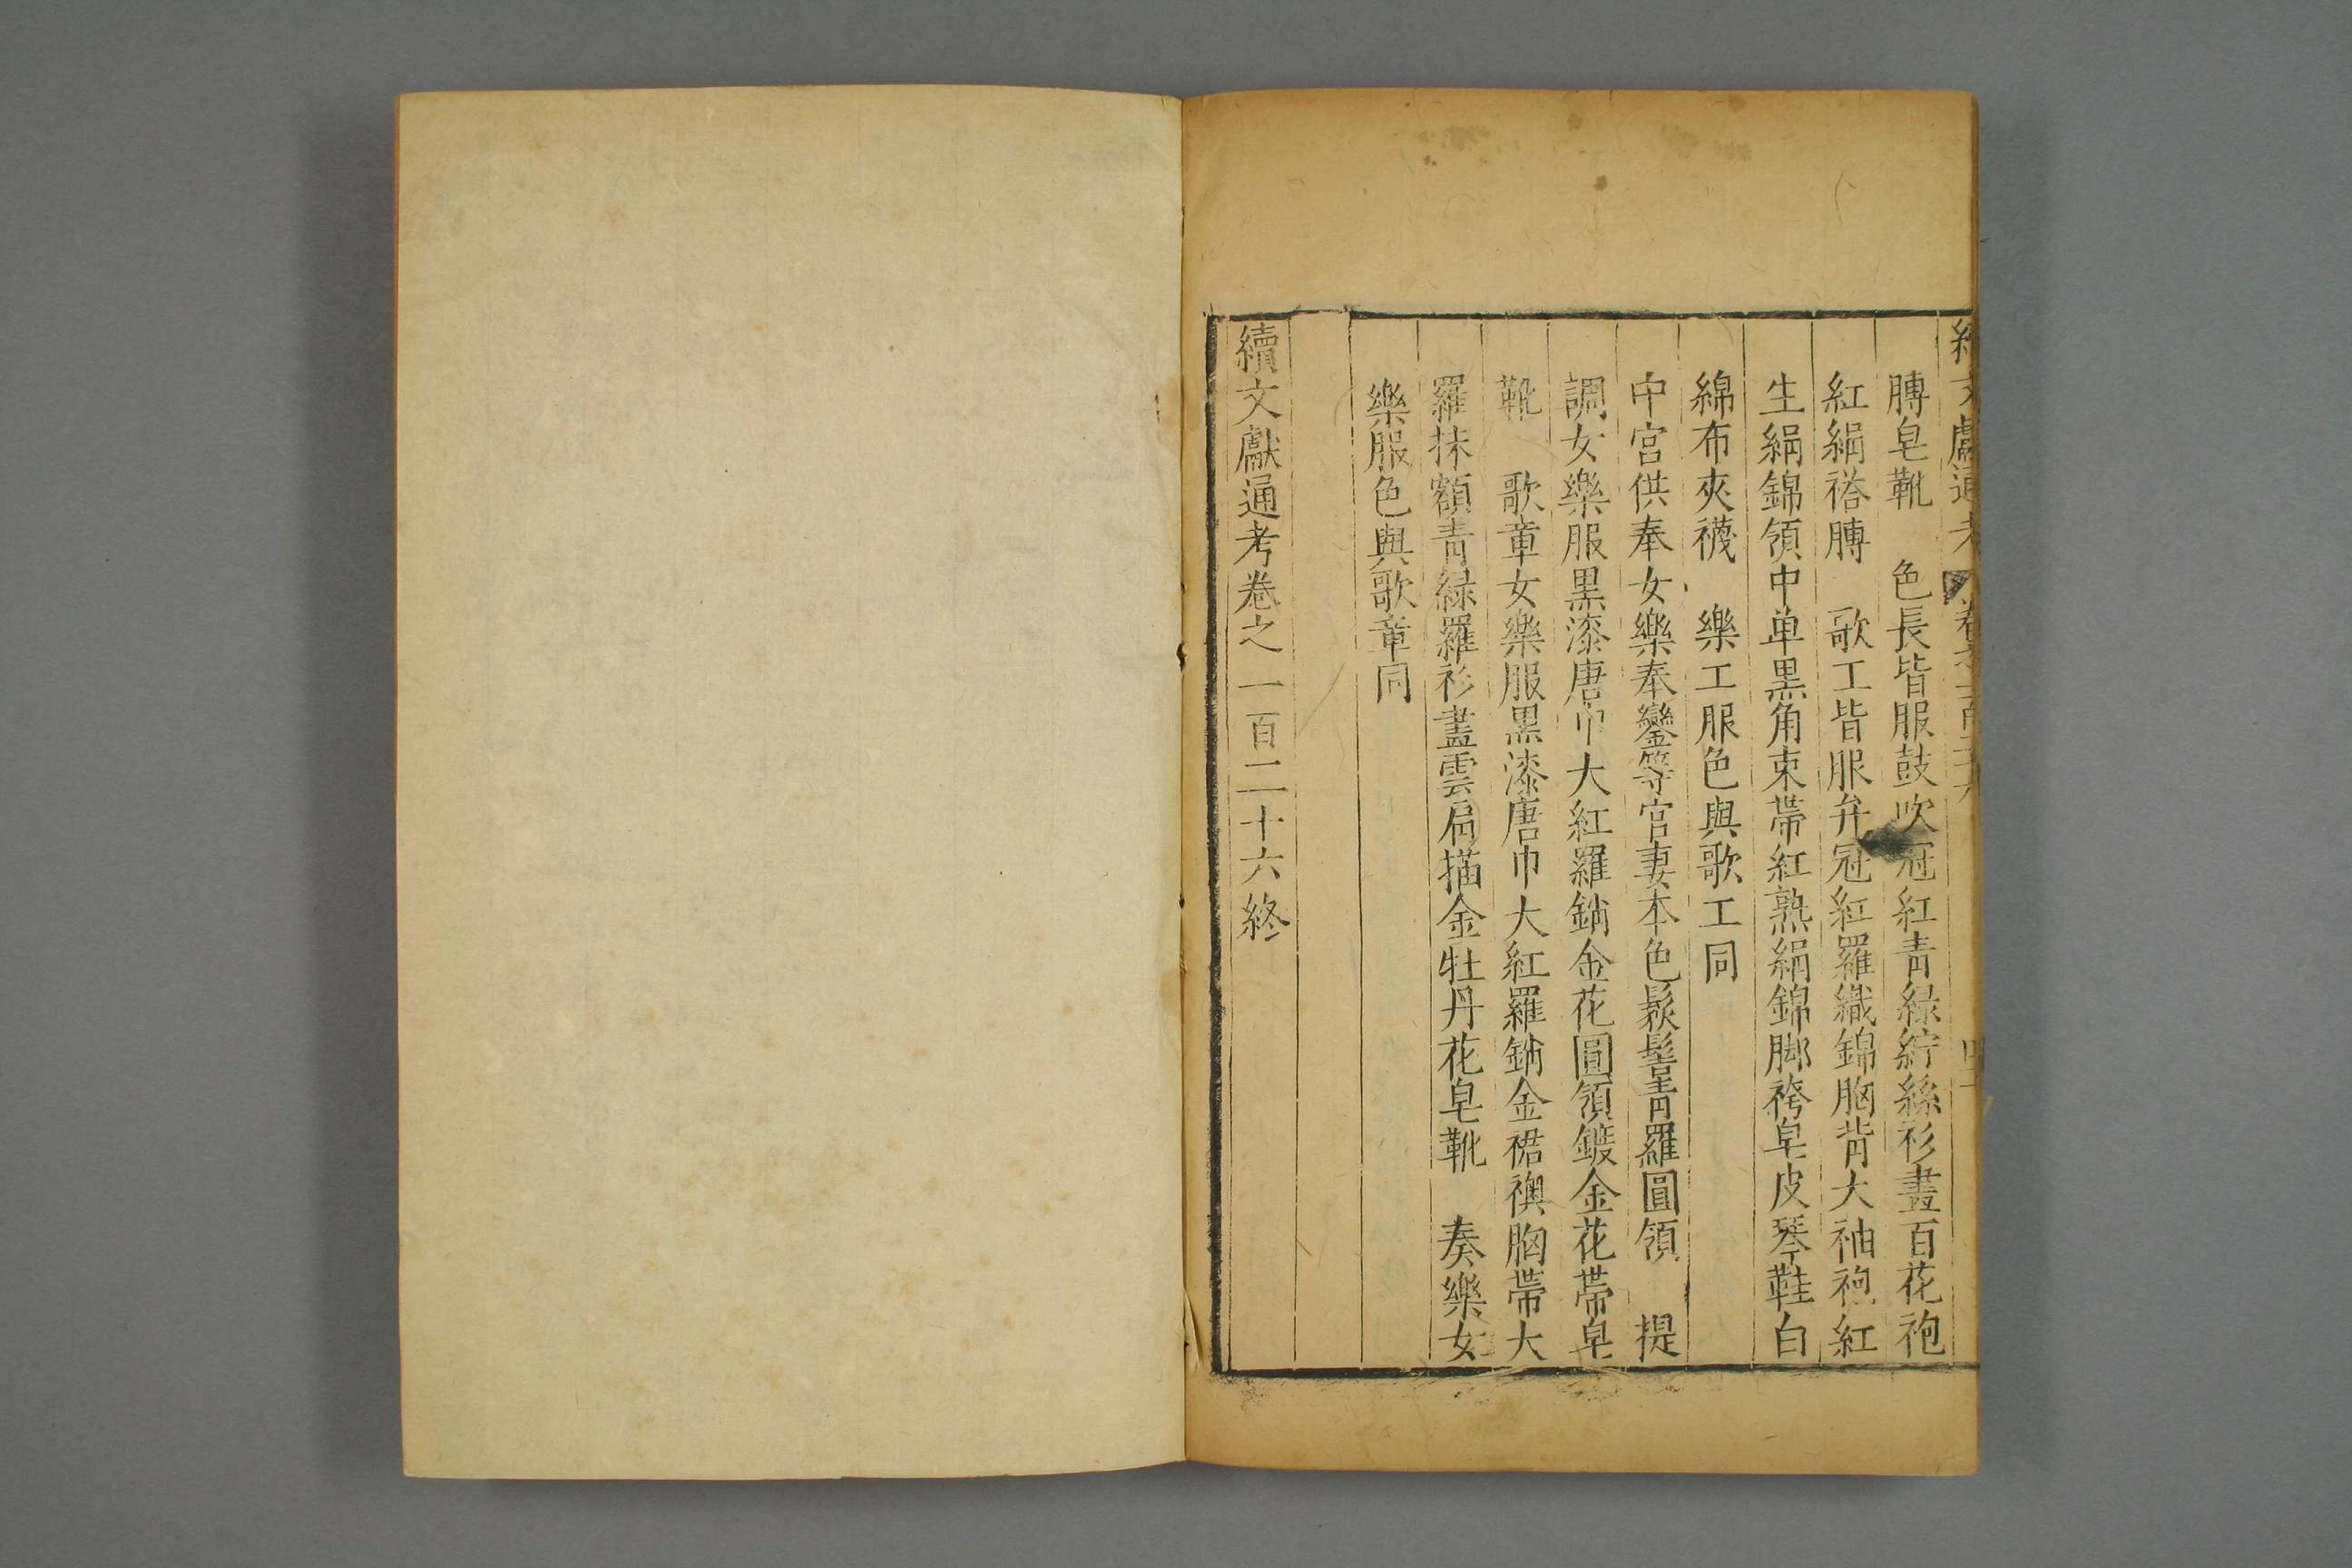 續文獻通考 卷之一百二十六
膊皂靴　色長皆服鼓吹冠紅青緑紵絲衫畫百花袍
紅絹褡膊　歌工皆服弁冠紅羅織錦胸背大袖袍紅
生絹錦領中单黑角束帶紅熟絹錦脚袴皂皮琴鞋白
綿布夾襪　樂工服色與歌工同
中宫供奉女樂奉鑾等官妻本色鬏髻青羅圓領　提
調女樂服黑漆唐巾大紅羅銷金花圓領鍍金花帶皂
靴　歌章女樂服黑漆唐巾大紅羅銷金裙襖胸帶大
羅抹額青緑羅衫畫雲肩描金牡丹花皂靴　奏樂女
樂服色與歌章同
續文獻通考卷之一百二十六終